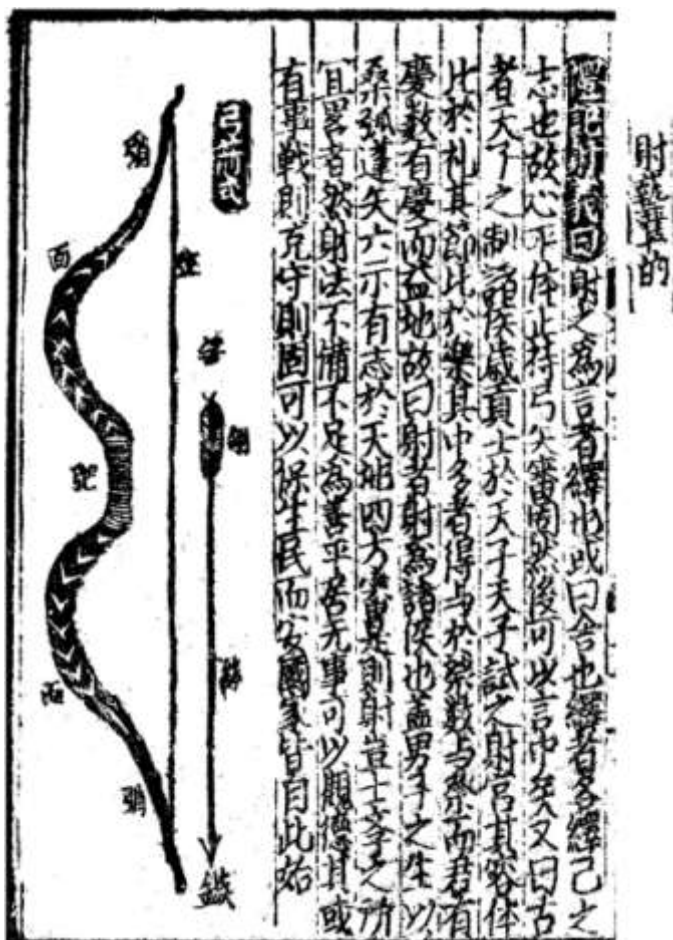 射藝準的
禮記射義曰射之為言者繹也或曰舍也繹者各繹己之
志也故心平体正持弓矢審固然後可以言中矣又曰古
者天子之制諸侯歲貢士於天子天子試之射宮其容体
比於礼其節比於樂其中多者得与於祭数与祭而君有
慶数有慶而益地故曰射者射為諸侯也盖男子之生以
桑弧蓬矢六示有志於天地四方是則射豈士之所
宜畧者然射法不備不足為善平居无事可以觀德其或
有事戰則克守則固可以保生民而安國家皆自此始
弓箭式
筈
翎
鏃
弦
弰
面
弝
面
弰